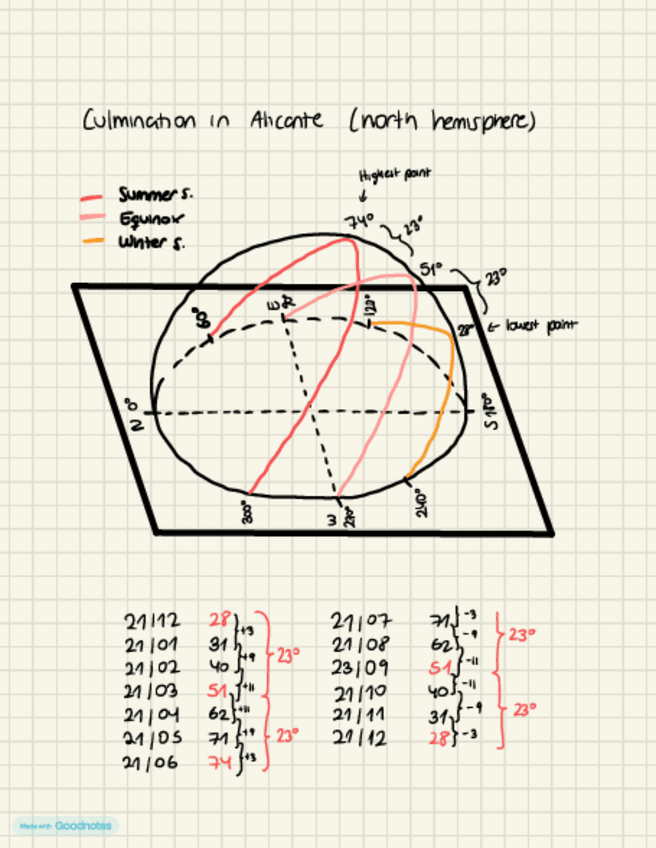 Culmination in Alicante (north hemisphere)
Highest point
Summer s.
Equinox
Winter s.
74°
23°
51°
23°
60°
E
120°
28° ← lowest point
N 0°
S 180°
300°
W 270°
240°
21/12 28 21/07 71 -3
+3
21/01 31 21/08 62 -9
+9 23° 23°
21/02 40 23/09 51 -11
+11
21/03 51 21/10 40 -11
+11
21/04 62 21/11 31 -9
+9 23° 23°
21/05 71 21/12 28 -3
+3
21/06 74
Made with Goodnotes